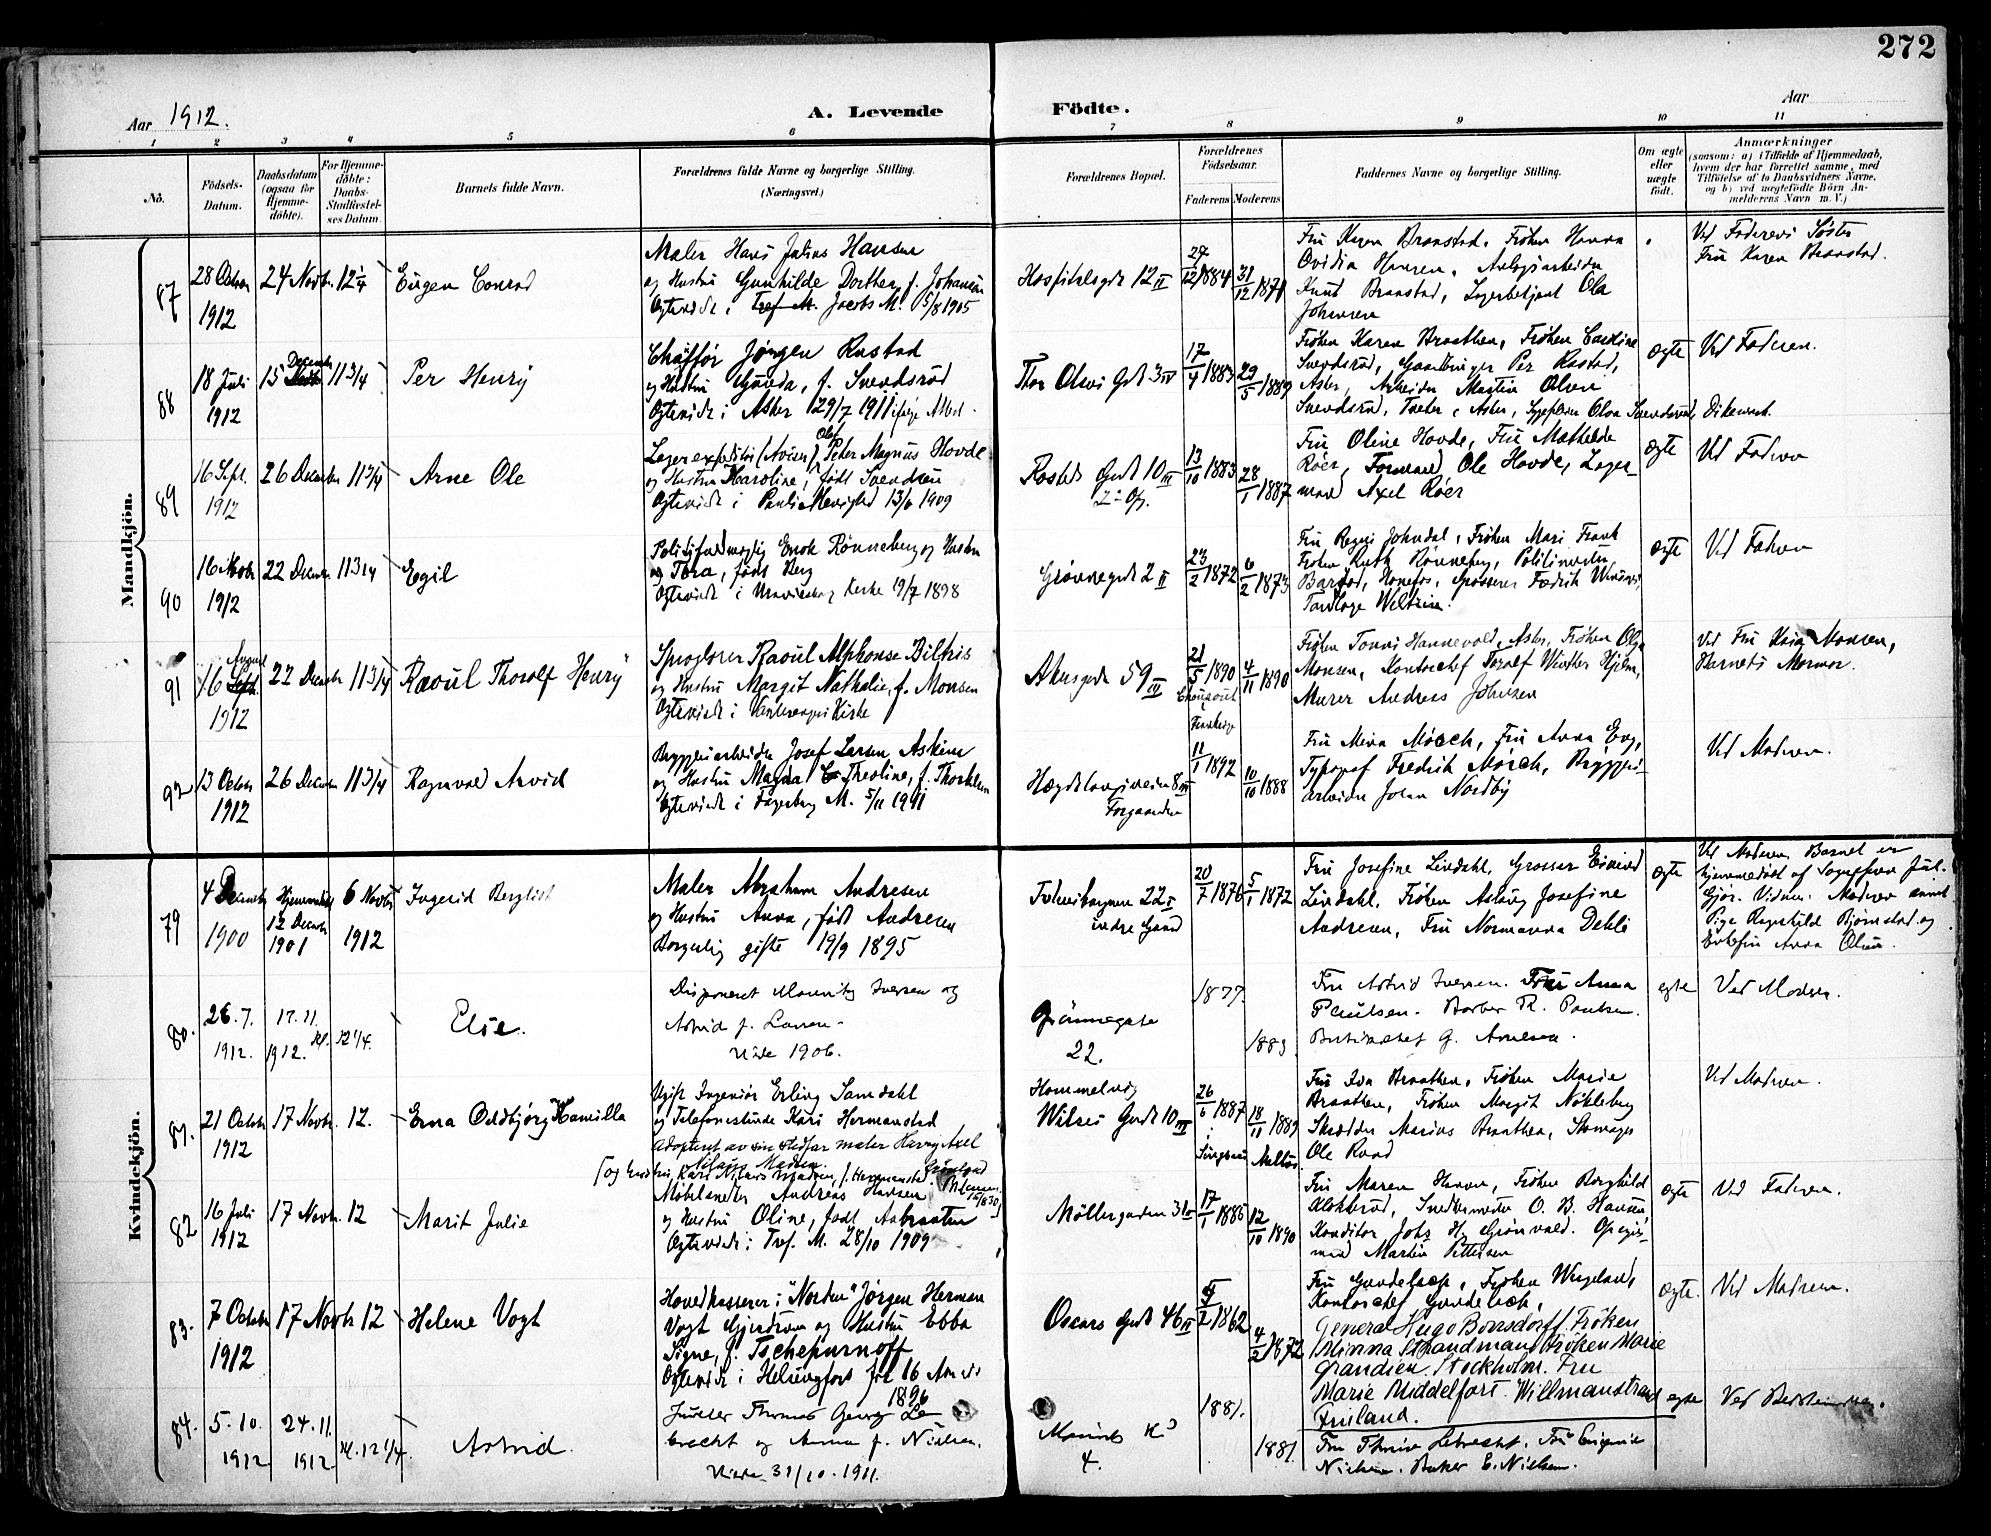 272
Aar 1912.
A. Levende Födte.
Aar
1 2 3 4 5 6 7 8 9 10 11
No.
Födsels-Datum.
Daabsdatum (ogsaa for Hjemme-döbte).
For Hjemme-döbte: Daabs-Stadfæstel-ses Datum
Barnets fulde Navn.
Forældrenes fulde Navne og borgerlige Stilling. (Næringsvei.)
Forældrenes Bopæl.
Forældrenes Födselsaar.
Faderens Moderens
Faddernes Navne og borgerlige Stilling.
Om ægte eller uægte født.
Anmærkninger
(saasom: a) i Tilfælde af Hjemmedaab,
hvem der har forrettet samme, med
Tilföielse af to Daabsvidners Navne,
og b) ved uægtefödte Börn An-
melderens Navn m. V.)
Mandkjön.
87
28 Octbr 1912
24 Novbr.
12 1/4
Eugen Conrad
Maler Hans Julius Hansen
og Hustru Gunhilde Dorthea, f. Johansen
Ægteviede i Jacobs M. 5/8 1905
Hospitalsgd. 12 II
27/12 1884
31/12 1871
Fru Karen Branstad, Frøken Hanna
Ovidia Hansen, Anlægsarbeider
Knut Branstad, Lagerbetjent Ola
Johansen
Ved Faderens Søster
Fru Karen Branstad.
88
18 Juli 1912
15 December
11 3/4
Per Henry
Chaffør Jørgen Rustad
og Hustru Gunda, f. Svendsrud
Ægteviede i Asker 29/7 1911 ifølge Attest.
Thor Olsens Gd. 3 IV
17/4 1883
29/5 1889
Frøken Karen Braathen, Frøken Caroline
Svendsrud, Gaardbruger Per Rustad,
Asker, Arbeider Martin Olsen
Svendsrud, Asker, Olga Svendsrud, Dikemark.
ægte
Ved Faderen.
89
16 Sept. 1912
26 December
11 3/4
Arne Ole
Lagerexpeditør (Aviser) Olaf Peter Magnus Hovde
og Hustru Karoline, født Svendsen
Ægteviede i Pauli Menighed 13/6 1909
Rosteds Gd. 10 III
2 Opg.
13/10 1883
28/1 1887
Fru Oline Hovde, Fru Mathilde
Røer, Formand Ole Hovde, Lager-
mand Axel Røer
ægte
Ved Faderen
90
16 Novbr 1912
22 December
11 3/4
Egil
Politifuldmægtig Enok Rønneberg og Hustru
Tora, født Berg
Ægteviede i Uranienborg Kirke 19/7 1898
Grønnegd. 2 II
23/2 1872
6/2 1873
Fru Johndal, Frøken Mari Frank
Frøken Ruth Rønneberg, Politimester
Barfod, Hønefos, Grosserer Fredrik
ægte
Ved Faderen
91
16 August 1912
22 December
11 3/4
Raoul Thorolf Henry
Sproglærer Raoul Alphonse Biltris
og Hustru Margit Nathalie, f. Monsen
Ægteviede i Vaterlands Kirke
Akersgade 59 III
21/5 1890
Frankrige
4/11 1890
Frøken Hannevold, Asker, Frøken Olga
Monsen, Kontorchef Toralf Winther Hjelm,
Murer Andreas Johnsen
Ved Fru Kaia Monsen,
Barnets Mormor.
92
13 Octbr 1912
26 December
11 3/4
Ragnvald Arvid
Bryggeriarbeider Josef Larsen Askim
og Hustru Magda Theoline, f. Thorkildsen
Ægteviede i Fagerborg M. 5/11 1911
8 III
Forgaarden
11/1 1892
10/10 1888
Fru Mina Mørch, Fru Anna Eng,
Typograf Fredrik Mørch, Bryggeri-
arbeider Johan Nordby
Ved Moderen.
Kvindekjön.
79
4 December 1900
Hjemmedøbt
12 December 1901
6 Novbr 1912
Ingerid Bergliot
Maler Abraham Andresen
og Hustru Anna, født Andresen
Borgerlig gifte 19/9 1895
22 I
indre Gaard
20/7 1876
5/1 1872
Fru Josefine Lindahl, Grosserer Eivind
Lindahl, Frøken Aslaug Josefine
Andresen, Fru Normanna Dehli
ægte
Ved Moderen. Barnet er
hjemmedøbt af Sognepræst Jul.
Gjør. Vidner: Moderen samt
Pige Ragnhild Bjørnstad og
Anna Olsen.
80.
26.7. 1912.
17.11. 1912.
kl. 12 1/4.
Else.
Disponent Mauritz Iversen og
Astrid f. Larsen.
Viede 1906.
Grønnegate 22.
1877.
1883.
Fru Astrid Iversen. Fru Anna
Paulsen. Barber R. Paulsen.
G. Arnesen.
egte
Ved Moderen.
81.
21 Octbr 1912
17 Novbr.
12.
Erna Oddbjørg Kamilla
Ugift Ingeniør Erling Samdahl
og Telefonistinde Kari Hermanstad
adoptert av sin stedfar maler Harry Axel
Nilaus Madsen.
Hommelvig
Wilses Gd. 10 III
26/6 1887
18/11 1889
Fru Eva Braathen, Frøken Marie
Braathen, Frøken Margit Nøkleberg
Skrædder Marius Braathen,
Ole Raad
Ved Moderen.
82
16 Juli 1912
17 Novbr.
12
Marit Julie
Møbelhandler Andreas Hansen
og Hustru Oline, født Aabraaten
Ægteviede i Tref. M. 28/10 1909
Møllergaden 31
17/1 1886
12/10 1890
Fru Maren Hansen, Frøken Borghild
Klokkerud, Snedkermester O. B. Hansen
Konditor Johs Hj. Grønvold.
Martin Pettersen
ægte
Ved Faderen.
83.
7 Octobr 1912
17 Novbr
12
Helene Vogt
Hovedkasserer i "Norden" Jørgen Herman
Vogt Gjerdrum og Hustru Ebba
Signe, f. Tschepurnoff
Ægteviede i Helsingfors
1896
Oscars Gd. 46 II
1862
4/2 1872
Fru Gundelach, Frøken Wergeland,
Kontorchef Gundelach,
General Hugo Bonsdorff, Frøken
Minna Strandman, Frøken Marie
Grandien, Stockholm. Fru
Marie Middelfart. Willmanstrand
Finland.
ægte.
Ved Moderen.
84.
5.10. 1912
24.11. 1912
kl. 12 1/4.
Astrid.
Juveler Thomas Georg Le-
brecht og Anna f. Nielsen.
Viede 31/10. 1911.
4.
1881.
1881
Fru Lebrecht.
Nielsen. Baker E. Nielsen.
egte